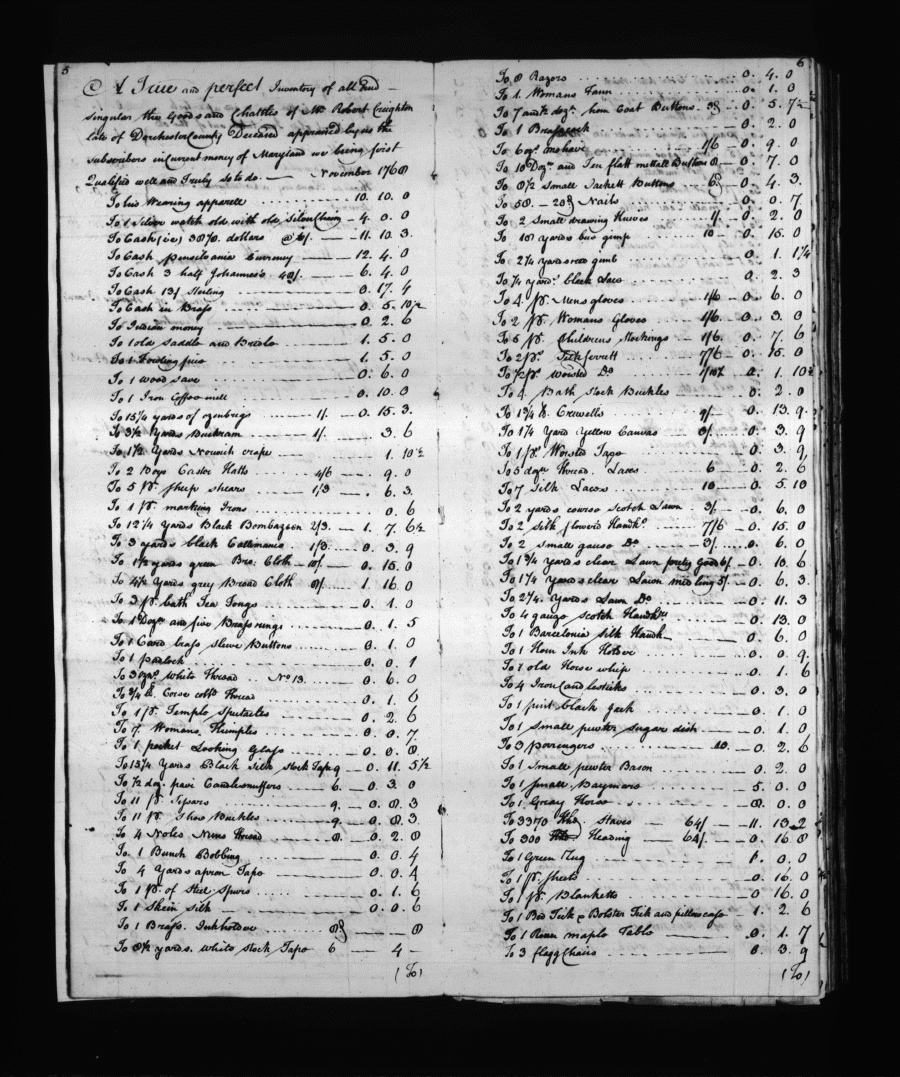 5
A True and perfect Inventory of all and
Singular the Goods and Chattles of Mr Robert Creighton
late of Dorchester County Deceased appraised by us the
Subscribers in Current money of Maryland we being first
Qualified well and Truly so to do. November 1768
To his Wearing apparell 10. 10. 0
To 1 Silver watch old with old Silver Chain 4. 0. 0
To Cash dollars 11. 10. 3
To Cash Pensilvania Currency 12. 4. 0
To Cash 3 half Johannes's 6. 4. 0
To Cash 13/ Sterling 0. 17. 4
To Cash in Brass 0. 5. 10½
To Indian money 0. 2. 6
To 1 old Saddle and Bridle 1. 5. 0
To 1 Fowling piece 1. 5. 0
To 1 wood Save 0. 6. 0
To 1 Iron Coffee mill 0. 10. 0
To 15¼ yards of ozenbrigs 1/. 0. 15. 3
To 3½ Yards Buckram 1/. 3. 6
To 1½ Yards Norwich crape 1. 10½
To 2 Boys Castor Hatts 4/6 9. 0
To 5 pr. Sheep shears 1/3 6. 3
To 1 pr. marking Irons 0. 6
To 12¼ Yards Black Bombazeen 2/3. 1. 7. 6½
To 3 yards black Callimanco 1/3. 0. 3. 9
To 1½ yards green Bro: Cloth 0. 15. 0
To 4½ Yards grey Broad Cloth 8/. 1. 16. 0
To 3 pr. bath Tea Tongs 0. 1. 0
To 1 Dozn and five Brass rings 0. 1. 5
To 1 Card brass Sleeve Buttons 0. 1. 0
To 1 padlock 0. 0. 1
To 3 white Thread No 13. 0. 6. 0
To ¾ lb. Corse cold Thread 0. 1. 6
To 1 pr. Temple Spectacles 0. 2. 6
To 7 Womans Thimples 0. 0. 7
To 1 pocket Looking Glass 0. 0. 8
To 15¼ Yards Black Silk Stock Tape 9 0. 11. 5½
To ½ doz. pair Candlesnuffers 6. 0. 3. 0
To 11 pr. Scisars 9. 0. 8. 3
To 11 pr. Shoe Buckles 9. 0. 8. 3
To 4 Noles Nuns thread 8. 0. 2. 8
To 1 Bunch Bobbing 0. 0. 4
To 4 Yards apron Tape 0. 0. 4
To 1 pr. of Steel Spurs 0. 1. 6
To 1 Skein Silk 0. 0. 6
To 1 Brass Inkholder 8
To 8½ yards white Stock Tape 6 4
(To)
6
To 8 Razors 0. 4. 0
To 1 Womans Fann 0. 1. 0
To 7 and ½ dozn. horn Coat Buttons 0. 5. 7½
To 1 Brasscock 0. 2. 0
To 6 ozs. mohair 1/6 0. 9. 0
To 10 Dozn and Ten flatt mettell Buttons 8 0. 7. 0
To 8½ Small Jackett Buttons 0. 4. 3
To Nails 0. 0. 7
To 2 Small drawing Knives 1/. 0. 2. 0
To 18 yards gimp 10 0. 15. 0
To 2¼ yards 0. 1. 1¼
To ¼ yard. black Lace 0. 2. 3
To 4. pr. Mens gloves 1/6 0. 6. 0
To 2 pr. Womans Gloves 1/6. 0. 3. 0
To 5 pr. Childrens Stockings 1/6. 0. 7. 6
To 2 ps. Silk ferrett 7/6 0. 15. 0
To ½ ps. worsted Do. 0. 1. 10½
To 4 Bath Stock Buckles 0. 2. 0
To 1¾ lb. Crewells 0. 13. 9
To 1¼ Yard Yellow Canvas 3/. 0. 3. 9
To 1 ps. Worsted Tape 0. 3. 9
To 5 dozn Thread Laces 6 0. 2. 6
To 7 Silk Laces 10 0. 5. 10
To 2 yards course Scotch Lawn 3/ 0. 6. 0
To 2 Silk flowerd Handks. 7/6 0. 15. 0
To 2 Small gause Do 3/. 0. 6. 0
To 1¾ Yards clear Lawn prety good 6/ 0. 10. 6
To 1¼ Yards clear Lawn midling 5/ 0. 6. 3
To 2¼ Yards Lawn Do. 0. 11. 3
To 4 gauze Scotch Handks 0. 13. 0
To 1 Barcelonia Silk Handk 0. 6. 0
To 1 Horn Ink Holder 0. 0. 9
To 1 old Horse whip 0. 1. 6
To 4 Iron Candlesticks 0. 3. 0
To 1 pint black Jack 0. 1. 0
To 1 Small pewter Sugar dish 0. 1. 0
To 3 porrengers 10 0. 2. 6
To 1 Small pewter Bason 0. 2. 0
To 1 small Baymare 5. 0. 0
To 1 Gray Horse 8. 0. 0
To 3370 Staves 64/ 11. 13. 2
To 300 Heading 64/. 0. 16. 8
To 1 Green Rug 1. 0. 0
To 1 pr. Sheets 0. 16. 0
To 1 pr. Blanketts 0. 16. 0
To 1 Bed Tick & Bolster Tick and pillowcase 1. 2. 6
To 1 maple Table 0. 1. 7
To 3 flagg Chairs 0. 3. 9
(To)